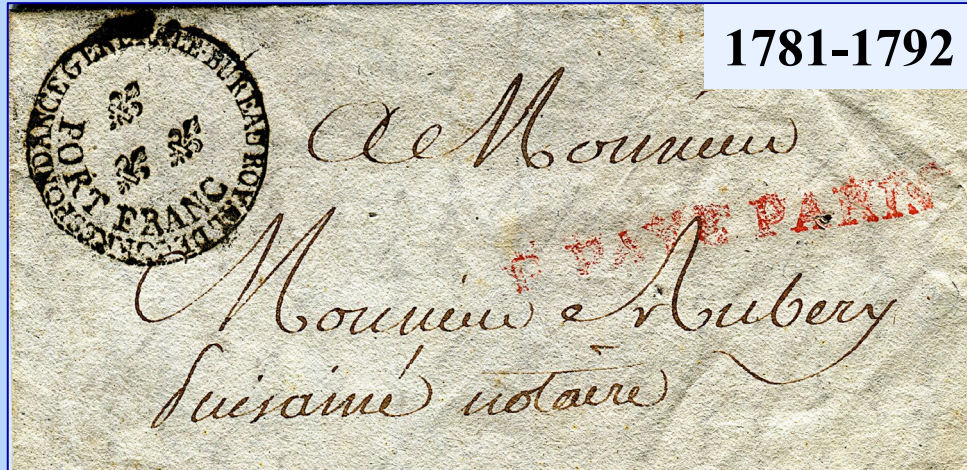 1781-1792
BUREAU ROYAL DE CORRESPONDANCE GENERALE
PORT FRANC
A Monsieur
P. PAYE PARIS
Monsieur Aubery
Puisainé notaire